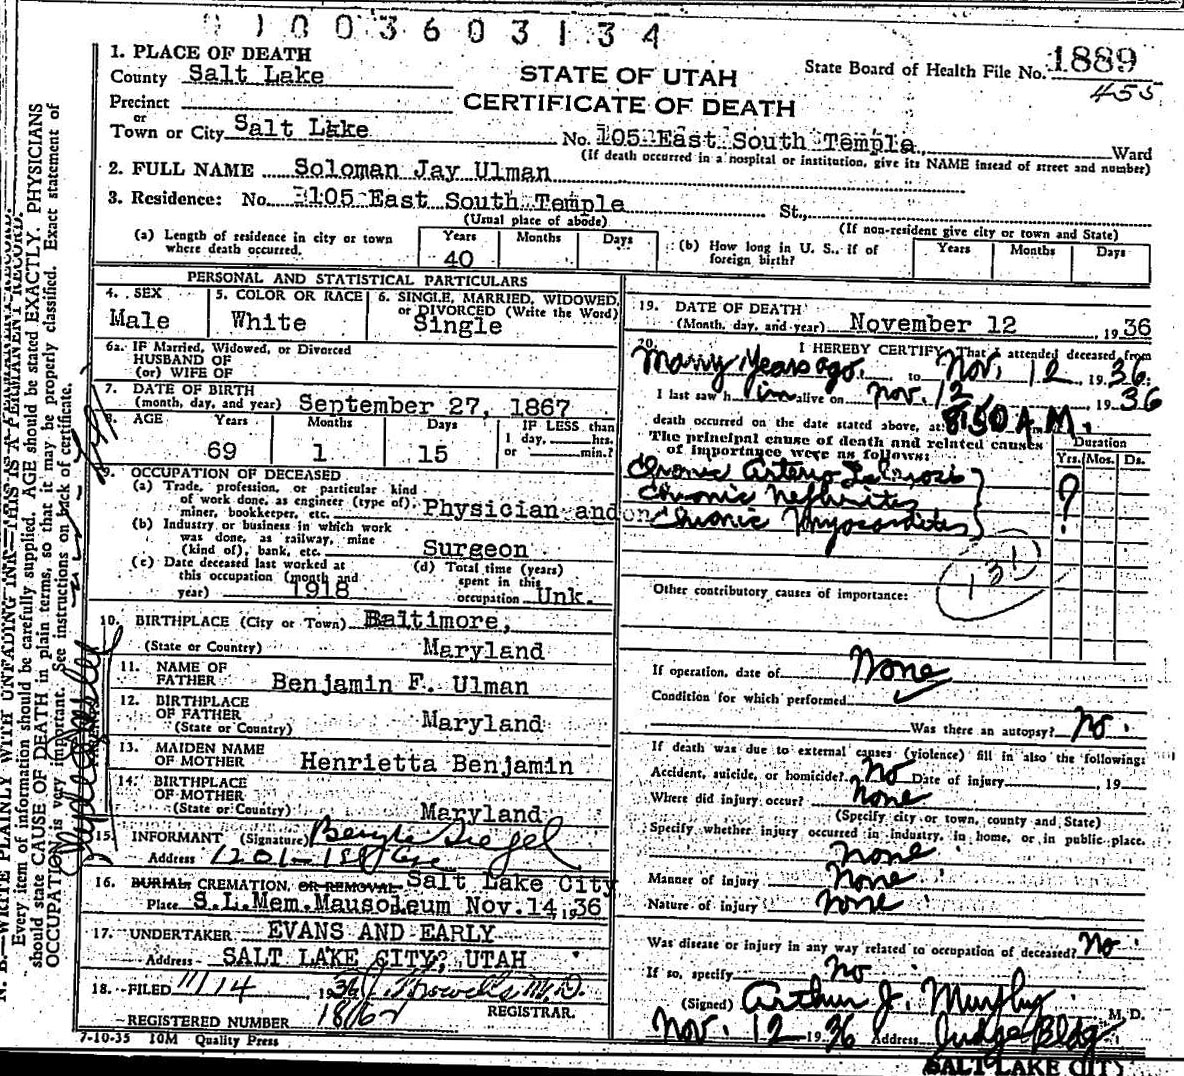 01003603134
1. PLACE OF DEATH
County Salt Lake
STATE OF UTAH
State Board of Health File No. 1889
455
Precinct
CERTIFICATE OF DEATH
or
Town or City Salt Lake No. 105 East South Temple Ward
(If death occurred in a hospital or institution, give its NAME insead of street and number)
2. FULL NAME Soloman Jay Ulman
3. Residence: No. 105 East South Temple St.,
(Usual place of abode) (If non-resident give city or town and State)
(a) Length of residence in city or town where death occurred. Years 40 Months Days
(b) How long in U. S., if of foreign birth? Years Months Days
PERSONAL AND STATISTICAL PARTICULARS
4. SEX Male
5. COLOR OR RACE White
6. SINGLE, MARRIED, WIDOWED, or DIVORCED (Write the Word) Single
6a. IF Married, Widowed, or Divorced
HUSBAND OF
(or) WIFE OF
7. DATE OF BIRTH
(month, day, and year) September 27, 1867
8. AGE Years 69 Months 1 Days 15 IF LESS than 1 day, hrs. or min.?
9. OCCUPATION OF DECEASED
(a) Trade, profession, or particular kind
of work done, as engineer (type of),
miner, bookkeeper, etc. Physician and
(b) Industry or business in which work
was done, as railway, mine
(kind of), bank, etc. Surgeon
(c) Date deceased last worked at
this occupation (month and
year) 1918
(d) Total time (years)
spent in this
occupation Unk.
10. BIRTHPLACE (City or Town) Baltimore,
(State or Country) Maryland
11. NAME OF
FATHER Benjamin F. Ulman
12. BIRTHPLACE
OF FATHER
(State or Country) Maryland
13. MAIDEN NAME
OF MOTHER Henrietta Benjamin
14. BIRTHPLACE
OF MOTHER
(State or Country) Maryland
15. INFORMANT (Signature) Siegel
Address 1201-1st Ave
16. BURIAL, CREMATION, OR REMOVAL Salt Lake City
Place S.L.Mem.Mausoleum Nov.14, 1936
17. UNDERTAKER EVANS AND EARLY
Address SALT LAKE CITY, UTAH
18. FILED 11/14, 1936 M.D.
REGISTRAR.
REGISTERED NUMBER 1862
7-10-35 10M Quality Press
19. DATE OF DEATH
(Month, day, and year) November 12, 1936
20. I HEREBY CERTIFY, That I attended deceased from
Many Years ago. to Nov. 12, 1936.
I last saw him alive on Nov. 12, 1936
death occurred on the date stated above, at 8:50 A.M.
The principal cause of death and related causes
of importance were as follows:
Duration
Yrs. Mos. Ds.
Chronic Arterio Sclerosis
Chronic Nephritis
Chronic Myocarditis
?
131
Other contributory causes of importance:
If operation, date of None
Condition for which performed
Was there an autopsy? No.
If death was due to external causes (violence) fill in also the following:
Accident, suicide, or homicide? No Date of injury , 19
Where did injury occur? None
(Specify city or town, county and State)
Specify whether injury occurred in industry, in home, or in public place.
None
Manner of injury None
Nature of injury None
Was disease or injury in any way related to occupation of deceased? No
If so, specify No
(Signed) Arthur J. Murphy M. D.
Nov. 12 1936 Address Judge Bldg.
SALT LAKE CITY
N. B.—WRITE PLAINLY WITH UNFADING INK—THIS IS A PERMANENT RECORD.
Every item of information should be carefully supplied. AGE should be stated EXACTLY. PHYSICIANS
should state CAUSE OF DEATH in plain terms, so that it may be properly classified. Exact statement of
OCCUPATION is very important. See instructions on back of certificate.